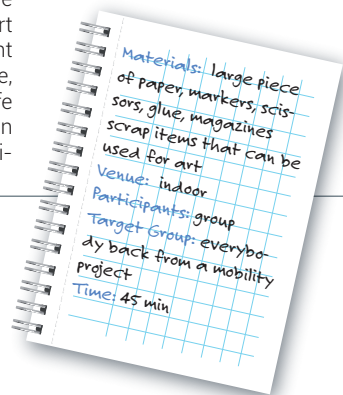 rt
nt
e,
fe
n
i-
Materials: large piece
of paper, markers, scis-
sors, glue, magazines
scrap items that can be
used for art
Venue: indoor
Participants: group
Target Group: everybo-
dy back from a mobility
project
Time: 45 min